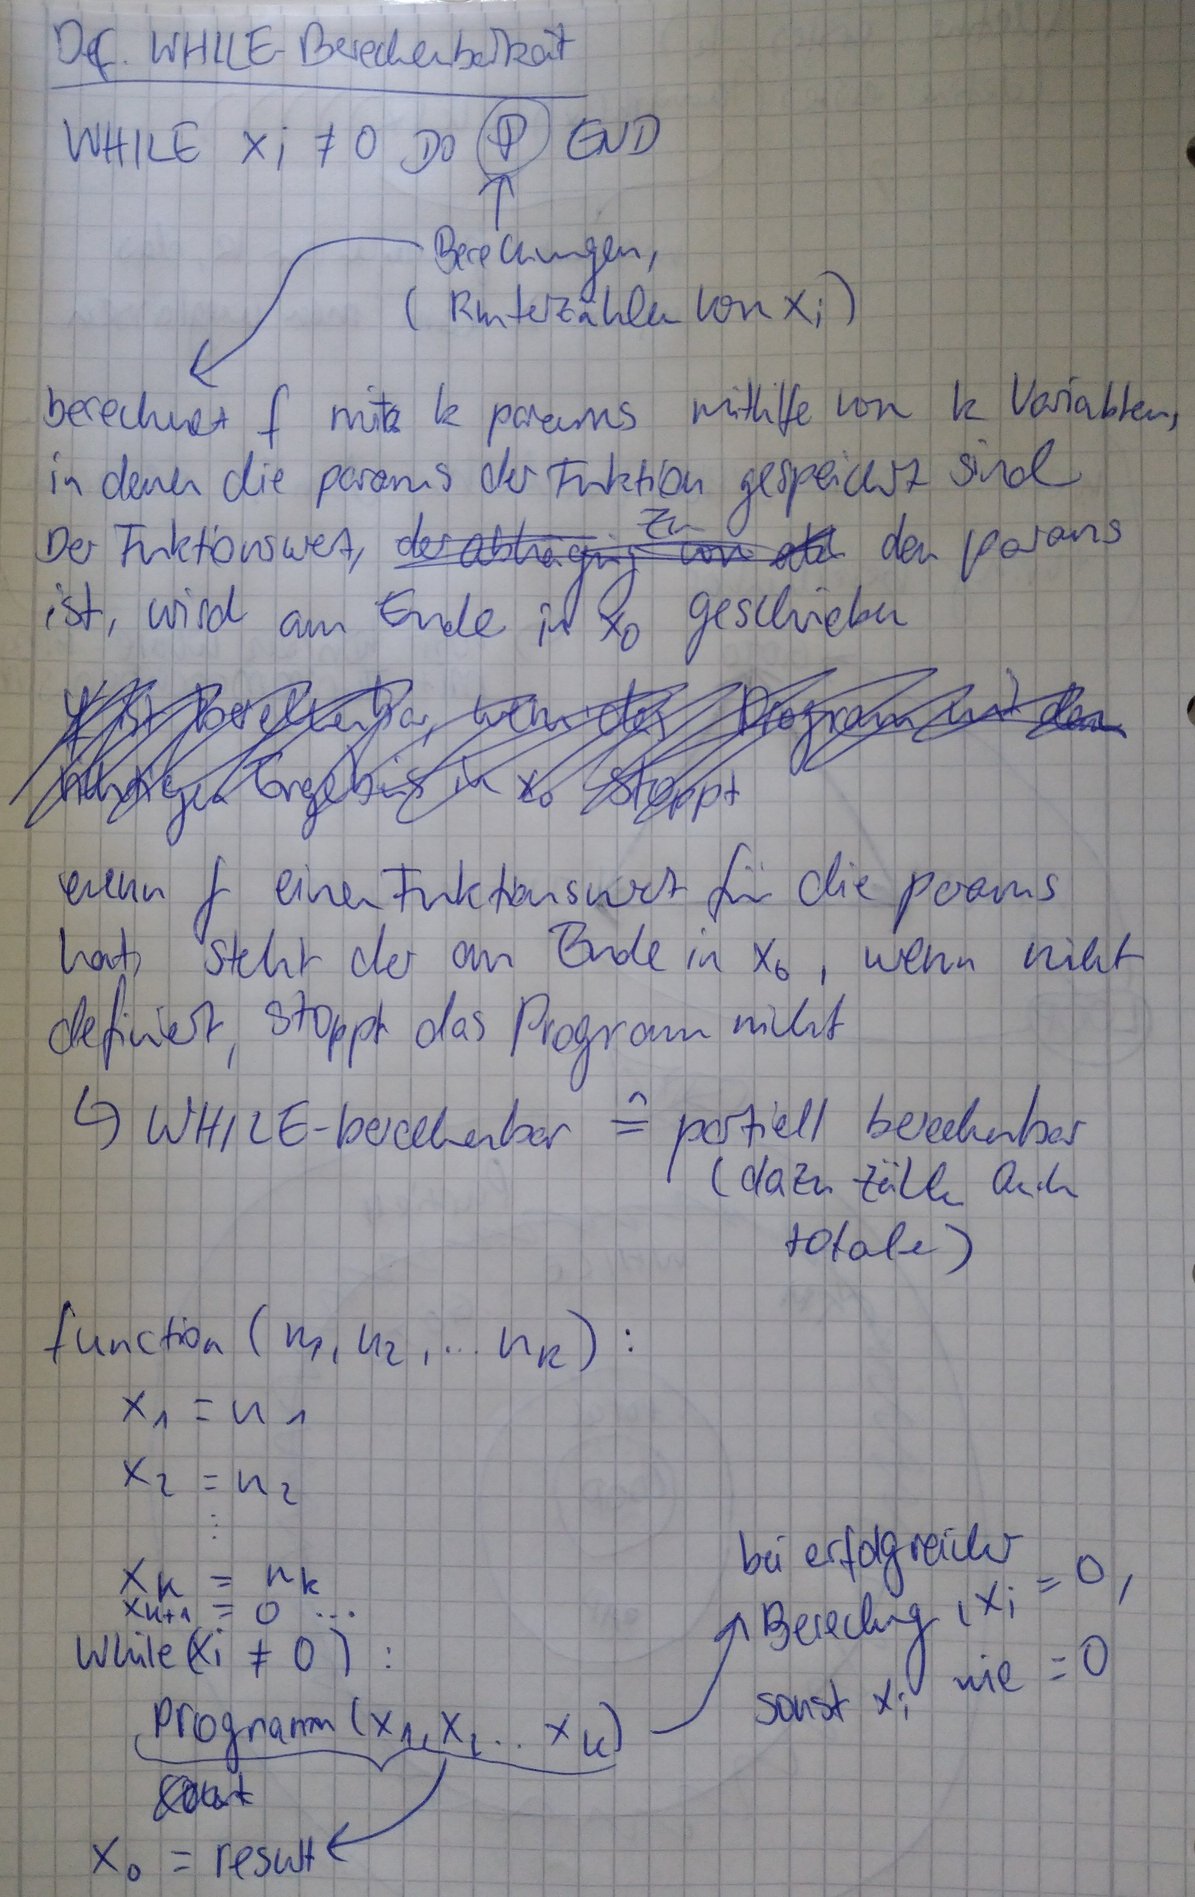 Def. WHILE-Berechenbarkeit
WHILE xi ≠ 0 DO P END
Berechungen,
(Runterzählen von xi)
berechnet f mit k params mithilfe von k Variablen,
in denen die params der Funktion gespeichert sind
Der Funktionswert, der abhängig von zu den params
ist, wird am Ende in x0 geschrieben
f ist berechenbar, wenn der Program mit dem
richtigen Ergebnis in x0 stoppt
wenn f einen Funktionswert für die params
hat, steht der am Ende in x0, wenn nicht
definiert, stoppt das Program nicht
↳ WHILE-berechenbar ≙ partiell berechenbar
(dazu zählen auch
totale)
function (n1, n2, ... nk):
x1 = n1
x2 = n2
⋮
xk = nk
xk+1 = 0 ...
While (xi ≠ 0):
programm (x1, x2 .. xk)
x0 = result
bei erfolgreicher
Berechng, xi = 0,
sonst xi nie = 0